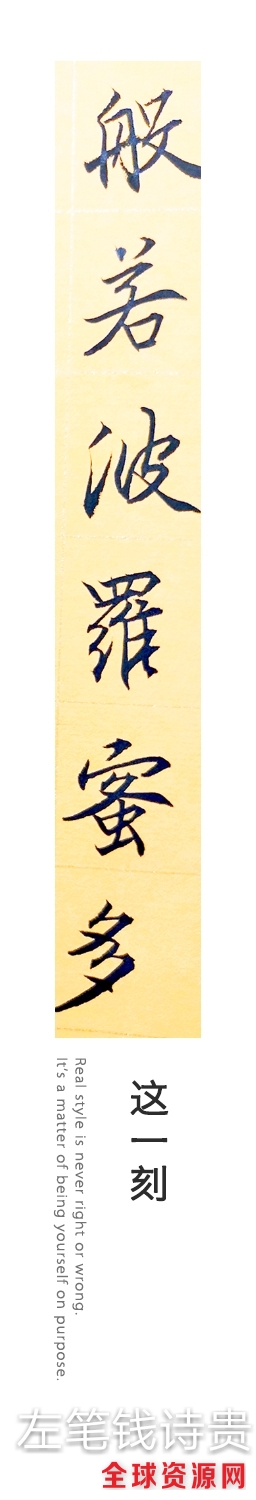 般若波羅蜜多
这一刻
Real style is never right or wrong.
It's a matter of being yourself on purpose.
左笔钱诗贵
全球资源网